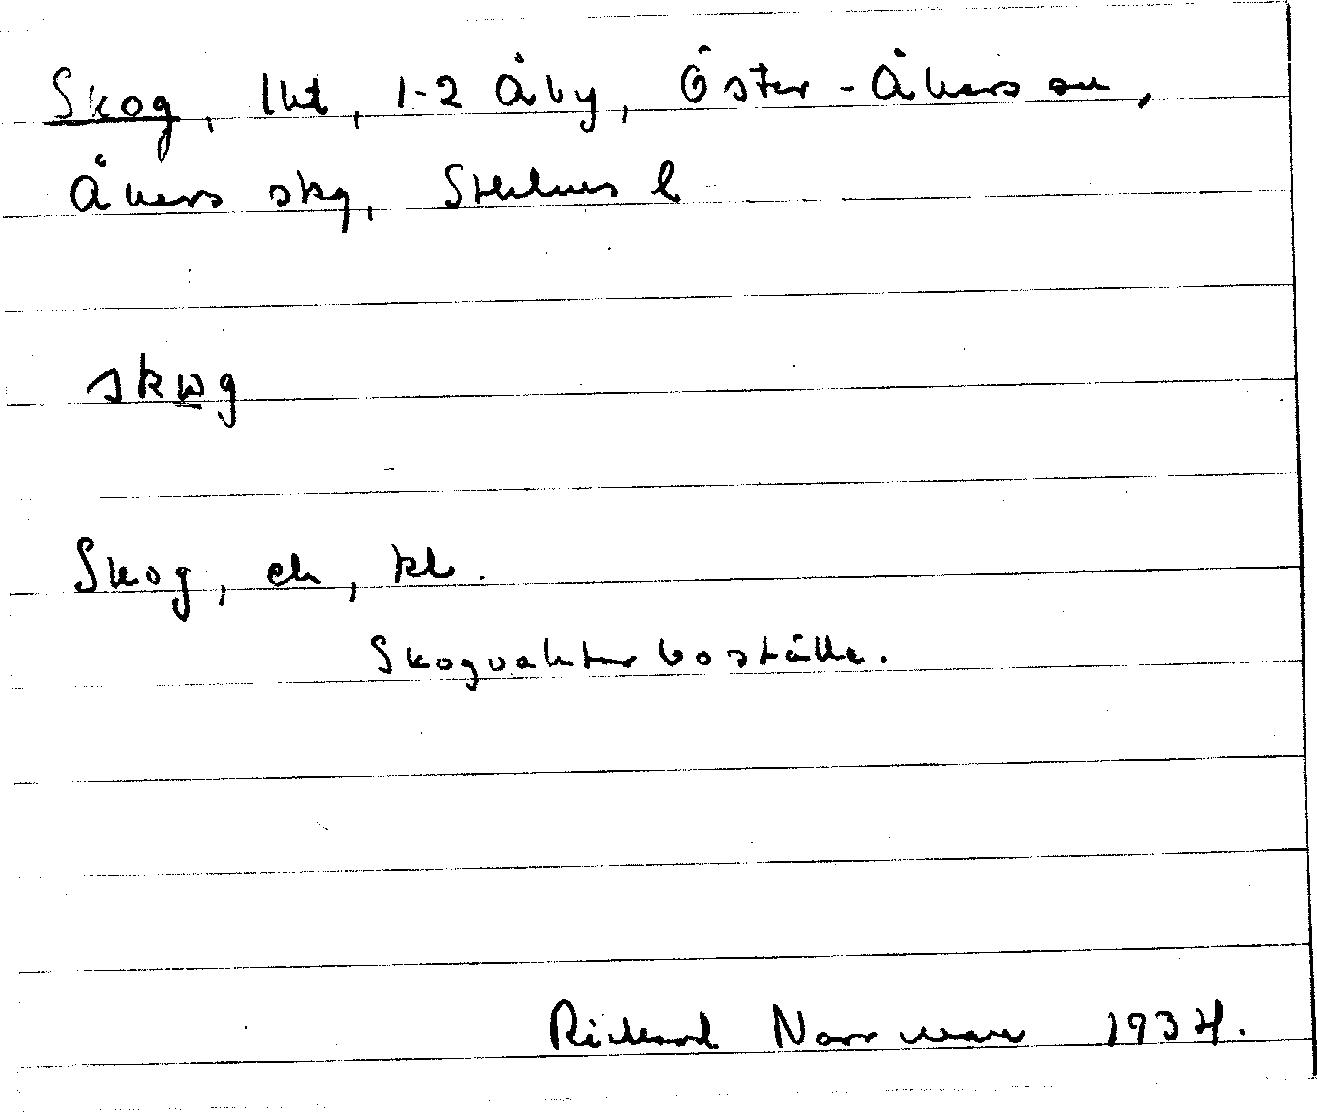 Skog, lht, 1-2 Åby, Öster-Åkers sn,
Åkers skg, Sthlms l
skωg
Skog, ek, kb.
Skogvaktarboställe.
Rickard Norrman 1934.